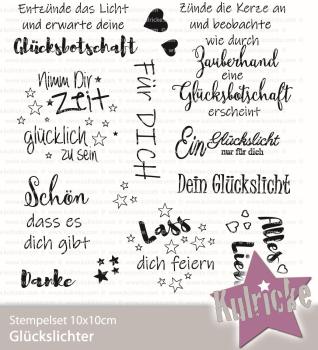 Entzünde das Licht
und erwarte deine
Glücksbotschaft
Zünde die Kerze an
und beobachte
wie durch
Zauberhand
eine
Glücksbotschaft
erscheint
Nimm Dir
Zeit
glücklich
zu sein
Für DICH
Ein Glückslicht
nur für dich
Dein Glückslicht
Schön
dass es
dich gibt
Lass
dich feiern
Alles
Liebe
Danke
Kulricke
Stempelset 10x10cm
Glückslichter